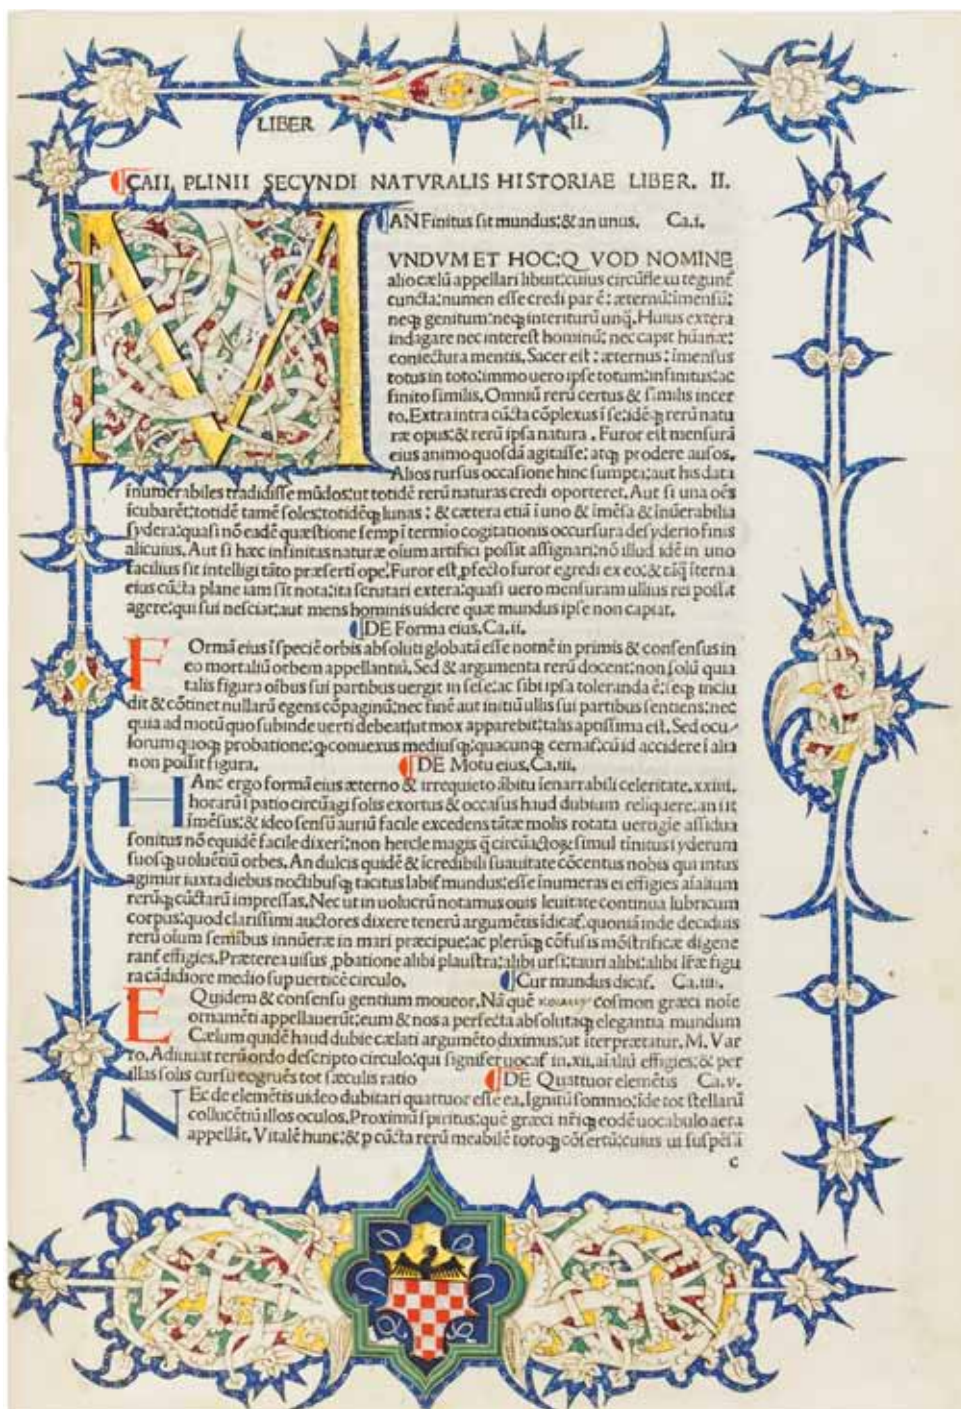 LIBER II.
CAII PLINII SECVNDI NATVRALIS HISTORIAE LIBER. II.
AN Finitus sit mundus:& an unus. Ca.i.
MVNDVM ET HOC:Q VOD NOMINE
alio cælū appellari libuit:cuius circūflexu tegunt̃
cuncta:numen esse credi par ē: æternū:īmensū:
neq; genitum:neq; interiturū unq̄. Huius extera
indagare nec interest hominū: nec capit hūanæ:
coniectura mentis. Sacer est: æternus: īmensus
totus in toto:immo uero ipse totum:infinitus:ac
finito similis. Omniū rerū certus & similis incer
to. Extra intra cūcta cōplexus ī se:idēq; rerū natu
ræ opus:& rerū ipsa natura. Furor est mensurā
eius animo quosdā agitasse: atq; prodere ausos.
Alios rursus occasione hinc sumpta:aut his data
īnumerabiles tradidisse mūdos:ut totidē rerū naturas credi oporteret. Aut si una oēs
īcubaret:totidē tamē soles:totidēq; lunas: & cætera etiā ī uno & īmēsa & īnūerabilia
sydera:quasi nō eadē quæstione semp ī termio cogitationis occursura desyderio finis
alicuius. Aut si hæc infinitas naturæ oium artifici possit assignari:nō illud idē in uno
facilius sit intelligi tāto præserti ope. Furor est pfecto furor egredi ex eo:& tāq̄ īterna
eius cūcta plane iam sit nota:ita scrutari extera:quasi uero mensuram ullius rei possit
agere:qui sui nesciat:aut mens hominis uidere quæ mundus ipse non capiat.
DE Forma eius. Ca.ii.
FOrmā eius ī speciē orbis absoluti globatā esse nomē in primis & consensus in
eo mortaliū orbem appellantiū. Sed & argumenta rerū docent:non solū quia
talis figura oībus sui partibus uergit in sese:ac sibi ipsa toleranda ē:seq; inclu
dit & cōtinet nullarū egens cōpaginū:nec finē aut initiū ullis sui partibus sentiens:nec
quia ad motū quo subinde uerti debeat:ut mox apparebit:talis aptissima est. Sed ocu
lorum quoq; probatione:q; conuexus mediusq; quacunq; cernat̃:cū id accidere ī alia
non possit figura. DE Motu eius. Ca.iii.
HAnc ergo formā eius æterno & irrequieto ābitu īenarrabili celeritate. xxiiii.
horarū ī patio circūagi solis exortus & occasus haud dubium reliquere. an sit
īmēsus:& ideo sensū auriū facile excedens tātæ molis rotatæ uertigīe assidua
sonitus nō equidē facile dixeri:non hercle magis q̄ circūactoȝ simul tinitus syderum
suosq; uoluētiū orbes. An dulcis quidē & īcredibili suauitate cōcentus nobis qui intus
agimur iuxta diebus noctibusq; tacitus labit̃ mundus:esse īnumeras ei effigies aīalium
rerūq; cūctarū impressas. Nec ut in uolucrū notamus ouis leuitate continua lubricum
corpus:quod clarissimi auctores dixere tenerū argumētis īdicat̃. quoniā inde deciduis
rerū oium semībus innūeræ in mari præcipue:ac plerūq; cōfusis mōstrificæ digene
rant̃ effigies. Præterea uisus pbatione alibi plaustra:alibi ursi:tauri alibi:alibi lr̄æ figu
ra cādidiore medio sup uerticē circulo. Cur mundus dicat̃. Ca.iiii.
EQuidem & consensu gentium moueor. Nā quē κοσμον cosmon græci noīe
ornamēti appellauerūt:eum & nos a perfecta absolutaq; elegantia mundum
Cælum quidē haud dubie cælati argumēto diximus:ut īterprætatur. M. Var
ro. Adiuuat rerū ordo descripto circulo:qui signifer uocat̃ in.xii.aīaliū effigies:& per
illas solis cursu cōgruēs tot sæculis ratio DE Quattuor elemētis Ca.v.
NEc de elemētis uideo dubitari quattuor esse ea. Ignitū sommo:īde tot stellarū
collucētiū illos oculos. Proximū spiritus:quē græci nr̄iq; eodē uocabulo aera
appellāt. Vitalē hunc:& p cūcta rerū meabilē totoq; cōsertū:cuius ui suspēsā
c